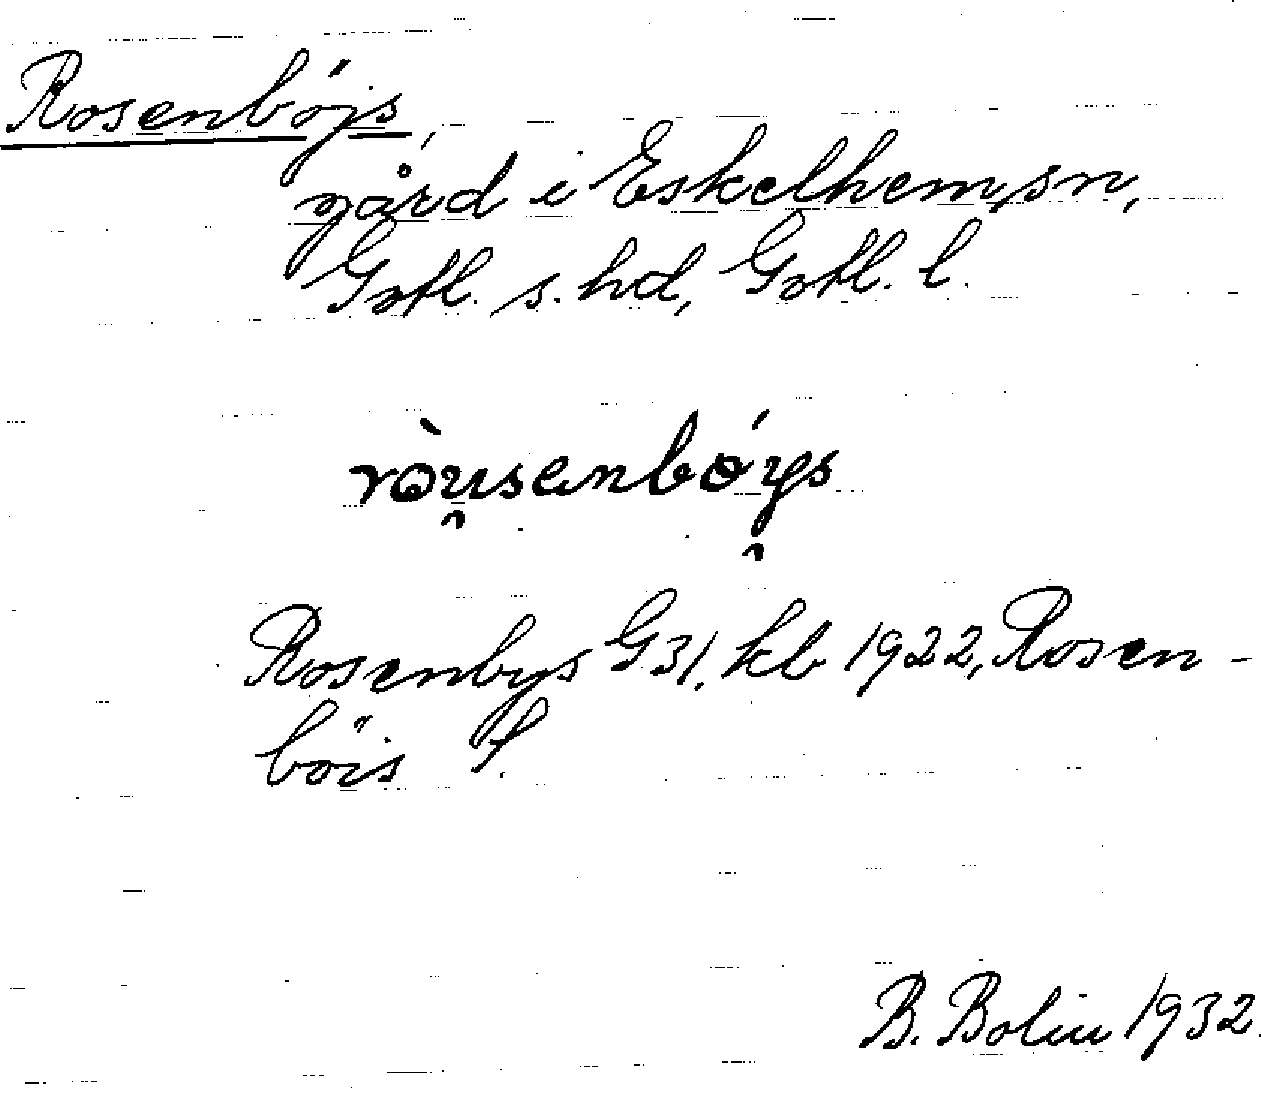 Rosenböjs,
gård i Eskelhem sn,
Gotl. s. hd, Gotl. l.
ròu̯senbóy̯s
Rosenbys G31, kb 1922, Rosen-
böis
B. Bolin 1932.